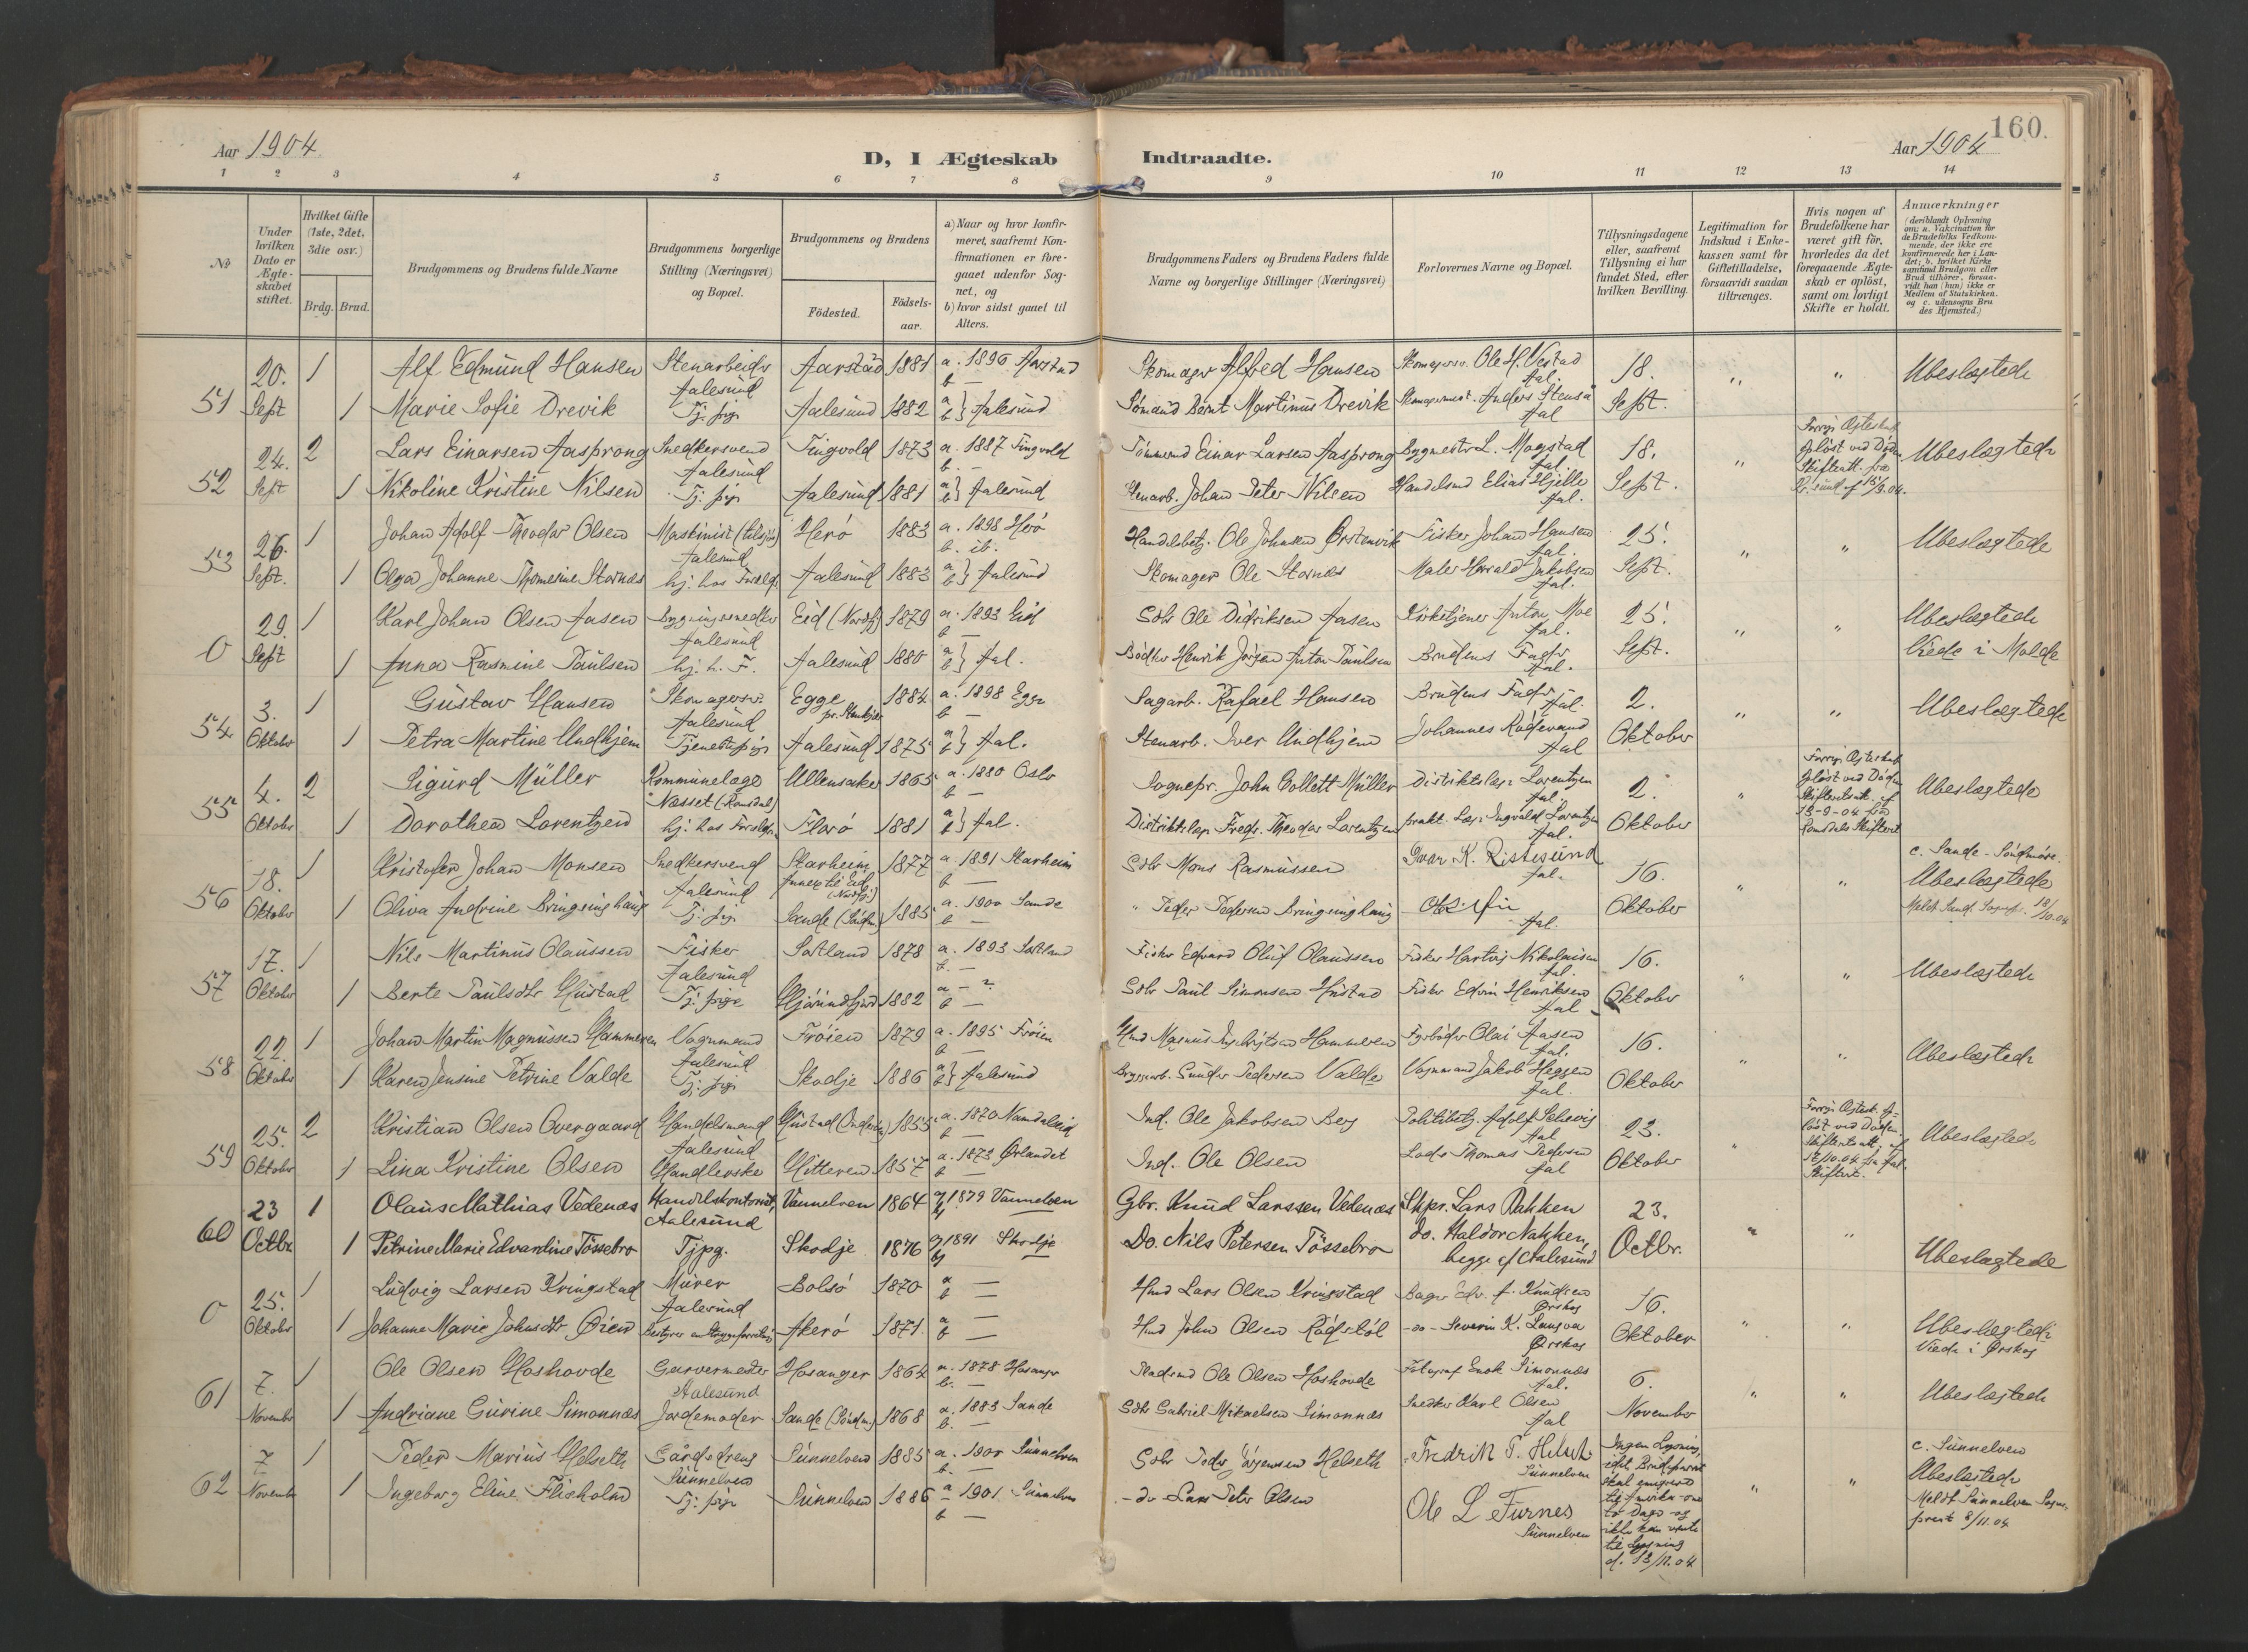 160.
Aar 1904
D, I Ægteskab Indtraadte.
Aar 1904
1 2 3 4 5 6 7 8 9 10 11 12 13 14
No
Under hvilken Dato er Ægteskabet stiftet.
Hvilket Gifte (1ste, 2det, 3die osv.)
Brdg. Brud.
Brudgommens og Brudens fulde Navne
Brudgommens borgerlige Stilling (Næringsvei) og Bopæl.
Brudgommens og Brudens
Födested.
Födselsaar.
a) Naar og hvor konfirmeret, saafremt Konfirmationen er foregaaet udenfor Sognet, og
b) hvor sidst gaaet til Alters.
Brudgommens Faders og Brudens Faders fulde Navne og borgerlige Stillinger (Næringsvei)
Forlovernes Navne og Bopæl.
Tillysningsdagene eller, saafremt Tillysning ei har fundet Sted, efter hvilken Bevilling.
Legitimation for Indskud i Enkekassen samt for Giftetilladelse, forsaavidt saadan tiltrænges.
Hvis nogen af Brudefolkene har været gift för, hvorledes da det foregaaende Ægteskab er oplöst, samt om lovligt Skifte er holdt.
Anmærkninger (deriblandt Oplysning om: a. Vakcination for de Brudefolks Vedkommende, der ikke ere konfirmerede her i Landet; b. hvilket Kirkesamfund Brudgom eller Brud tilhörer, forsaavidt han (hun) ikke er Medlem af Statskirken. og c. udensogns Brudes Hjemsted.)
51 20. Sept 1 Alf Edmund Hansen Stenarbeider Aalesund Aarstad 1881 a. 1896 Aarstad b — Skomager Alfred Hansen Skomagersv. Ole H. Vestad Aal. 18. Sept. " " Ubeslægtede
1 Marie Sofie Drevik Tj. pige Aalesund 1882 a b } Aalesund Sömand Bernt Martinus Drevik Anders Stenså Aal
52 24. Sept 2 Lars Einarsen Aasprong Snedkersvend Aalesund Tingvold 1873 a. 1887 Tingvold b. — Tömmermd Einar Larsen Aasprong Bygmester L. Mogstad Aal. 18. Sept. " Forrige Ægteskab oplöst ved Döden Skifteatt. fra Kr.sund af 15/9.04. Ubeslægtede
1 Nikoline Kristine Nilsen Tj. pige Aalesund 1881 a b } Aalesund Stenarb. Johan Peter Nilsen Handelsmd Elias Hjelle Aal.
53 26. Sept. 1 Johan Adolf Theodor Olsen Maskinist (tilsjös) Aalesund Herö 1883 a. 1898 Herö b. ib. Handelsbetj. Ole Johnsen Ørstenvik Fisker Johan Hansen Aal. 25. Sept. " " Ubeslægtede
1 Olga Johanne Thomesine Stornæs hj. hos Forældr. Aalesund 1883 a b } Aalesund Skomager Ole Stornæs Maler Harald Jakobsen Aal.
0 29. Sept 1 Karl Johan Olsen Aasen Bygningssnedker Aalesund Eid (Nordfj) 1879 a. 1893 Eid b — Sdbr Ole Didriksen Aasen Kirketjener Anton Moe Aal. 25. Sept. " " Ubeslægtede
1 Anna Rasmine Paulsen hj. h. F. Aalesund 1880 a b } Aal. Bödker Henrik Jörgen Anton Paulsen Brudens Fader Aal. Viede i Molde
54 3. Oktober 1 Gustav Hansen Skomagersv. Aalesund Egge pr. Stenkjær 1884 a. 1898 Egge b — Sagarb. Rafael Hansen Brudens Fader Aal. 2. Oktober " " Ubeslægtede
1 Petra Martine Undhjem Tjenestepige Aalesund 1875 a b } Aal. Stenarb. Iver Undhjem Johannes Rödevand Aal
55 4. Oktober 2 Sigurd Müller Kommunelæge Næsset (Romsdal) Ullensaker 1865 a. 1880 Oslo b — Sognepr. John Collett Müller Distriktslæge Lorentzen Aal. 2. Oktober " Forrige Ægteskab oplöst ved Döden Skifteattest af 13-9-04 fra Romsdals Skifteret Ubeslægtede
1 Dorothea Lorentzen hj. hos Forældr. Florö 1881 a b } Aal. Distriktslæge Fredr. Theodor Lorentzen prakt. Læge Ingvald Lorentzen Aal.
56 18. Oktober 1 Kristofer Johan Monsen Snedkersvend Aalesund Starheim Annex til Eid (Nordfj.) 1877 a 1891 Starheim b — Sdbr Mons Rasmussen Ivar K. Ristesund Aal. 16. Oktober " " c. Sande - Söndmöre. Ubeslægtede
1 Oliva Andrine Bringsinghaug Tj. pige Sande (Söndm.) 1885 a. 1900 Sande b — " Peder Pedersen Bringsinghaug Aal. Meldt Sand. Sognepr. 18/10.04
57 17. Oktober 1 Nils Martinus Olaussen Fisker Aalesund Sortland 1878 a. 1893 Sortland b. — Fisker Edvard Oluf Olaussen Fisker Hartvig Nikolaisen Aal. 16. Oktober " " Ubeslægtede
1 Berte Paulsdtr Hustad Tj. pige Hjörundfjord 1882 a — ? b — Sdbr Paul Simonsen Hustad Fisker Edvin Henriksen Aal
58 22. Oktober 1 Johan Martin Magnussen Hammeren Vognmand Aalesund Fröien 1879 a. 1895 Fröien b — Hammeren Fyrböder Olai Aasen Aal. 16. Oktober " " Ubeslægtede
1 Karen Jensine Petrine Valde Tj. pige Skodje 1886 a b } Aalesund Bryggearb. Sunder Pedersen Valde Vognmand Jakob Heggen Aal.
59 25. Oktober 2 Kristian Olsen Overgaard Handelsmand Aalesund Hustad 1855 a. 1870 Namdalseid b — Ind. Ole Jakobsen Berg Politibetj. Adolf Schevig Aal 23. Oktober " Forrige Ægtesk. oplöst ved Döden. Skifteatt. af 17/10.04 fra Aal. Skifteret. Ubeslægtede
1 Lina Kristine Olsen Handlerske Hitteren 1857 a. 1873 Ørlandet b — Ind. Ole Olsen Lods Thomas Pedersen Aal
60 23 Octbr. 1 Olaus Mathias Vedenæs Handelskontorist, Aalesund Vannelven 1864 a) 1879 Vannelven b) Gbr. Knud Larssen Vedenæs Skpr. Lars Nakken 23. Octbr. " " Ubeslægtede
1 Petrine Marie Edvardine Tössebro Tjpg. Skodje 1876 a) 1891 Skodje b) Do. Nils Petersen Tössebro do. Haldor Nakken, begge af Aalesund
0 25. Oktober 1 Ludvig Larsen Kringstad Murer Aalesund Bolsö 1870 a — b — Hmd Lars Olsen Kringstad Bager Edv. A. Knudsen Ørskog 16. Oktober " " Ubeslægtede
1 Johanne Marie Johnsdtr Øien Akerö 1871 a — b — Hmd John Olsen Rödstöl -do- Severin K. Langva Ørskog Viede i Ørskog
61 7. November 1 Ole Olsen Hoshovde Garvermester Aalesund Hosanger 1864 a. 1878 Hosanger b. — Pladsmd Ole Olsen Hoshovde Fotograf Enok Simonnæs Aal. 6. November " " Ubeslægtede
1 Andriane Gurine Simonnæs Jordemoder Sande (Söndm.) 1868 a. 1883 Sande b. — Sdbr Gabriel Mikaelsen Simonnæs Snedker Karl Olsen Aal
62 7. November 1 Peder Marius Helseth Gårdsdreng Sunnelven Sunnelven 1885 a. 1900 Sunnelven b. — Sdbr Peder Jörgensen Helseth Fredrik P. Helseth Sunnelven Ingen Lysning, idet Brudeparret skal emigrere til Amerika om to Dage og ikke kan vente til Lysning d. 13/11.04 " " c. Sunnelven Ubeslægtede
1 Ingeborg Eline Flisholm Tj. pige Sunnelven 1886 a 1901 Sunnelven b — -do- Lars Peter Olsen Ole L Furnes Sunnelven Meldt Sunnelven Sogneprest 8/11.04